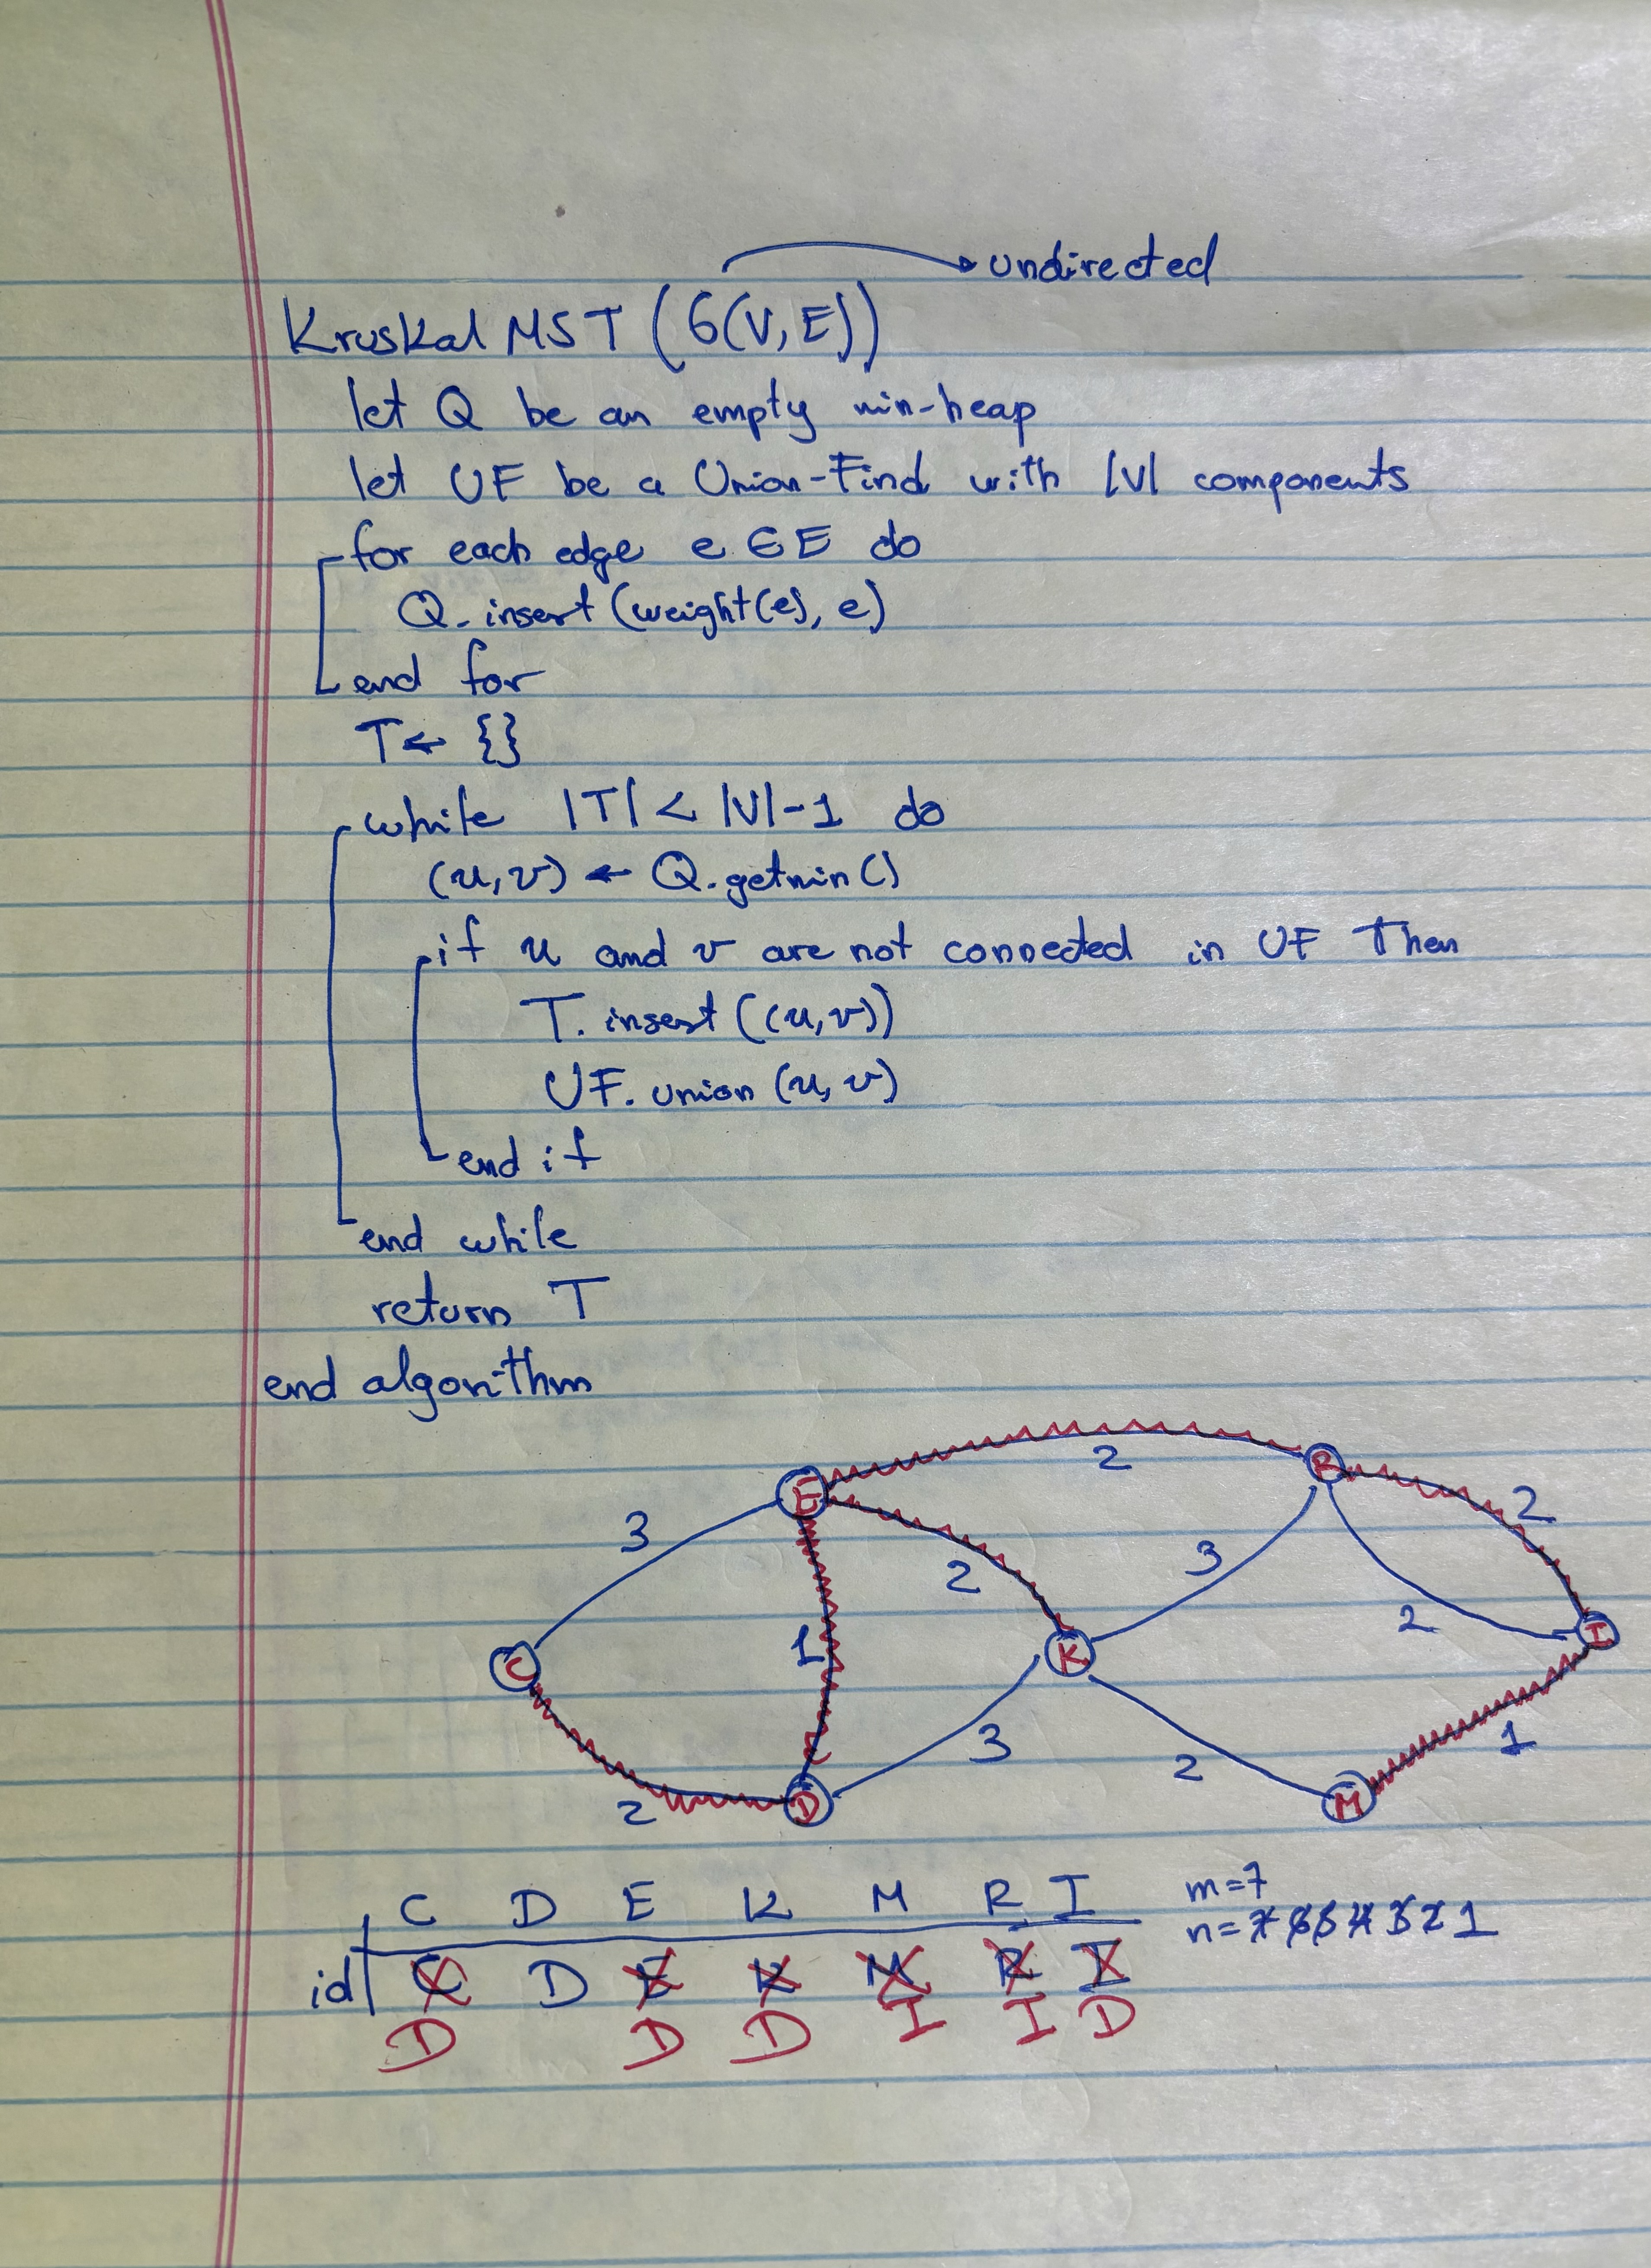 undirected
Kruskal MST (G(V,E))
let Q be an empty min-heap
let UF be a Union-Find with |V| components
for each edge e ∈ E do
Q.insert (weight(e), e)
end for
T ← {}
while |T| < |V|-1 do
(u,v) ← Q.getmin()
if u and v are not connected in UF Then
T.insert ((u,v))
UF.union (u,v)
end if
end while
return T
end algorithm
E 2 R
3 2 3 2
1 2
C K I
3 2 1
2 D M
C D E K M R I m=7
n=7 6 5 4 3 2 1
id C D E K M R I
D D D I I D